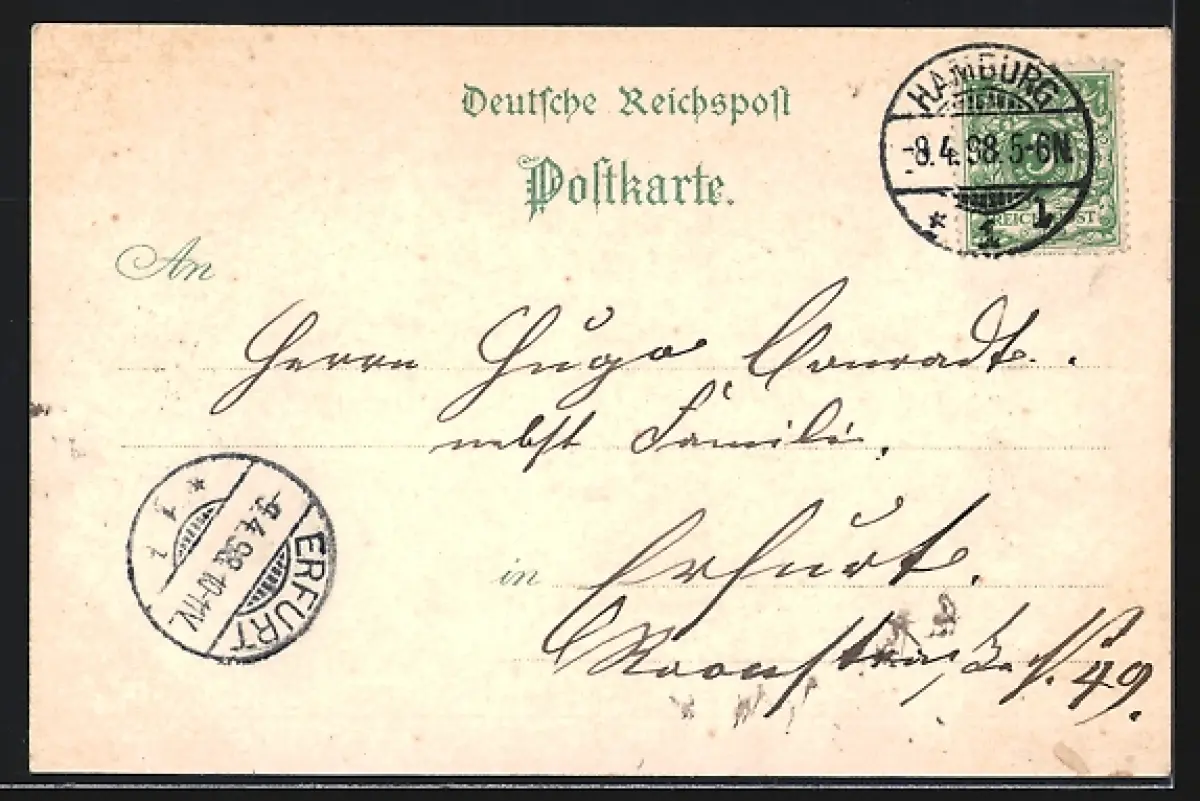 Deutsche Reichspost
Postkarte.
HAMBURG
-8.4.98.5-6N.
* 1 1
5
REICHSPOST
An
Herrn Hugo Conradt.
nebst Familie,
in Erfurt.
Roonstraße N. 49.
ERFURT
-9.4.98.10-11V.
* 1